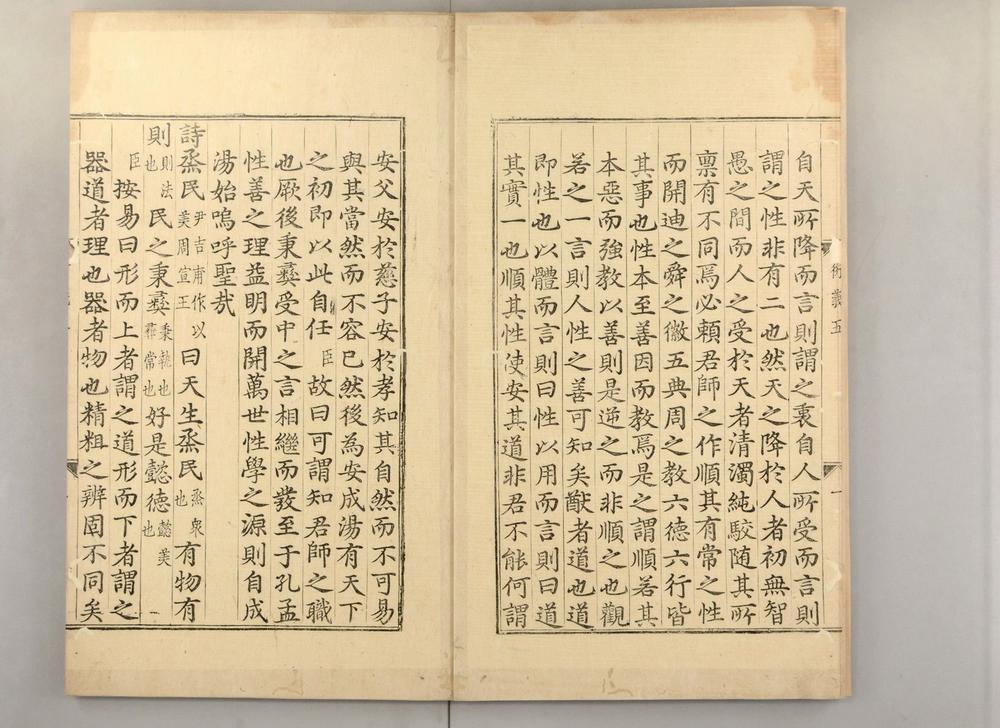 衍義五
一
自天所降而言則謂之衷自人所受而言則
謂之性非有二也然天之降於人者初無智
愚之間而人之受於天者清濁純駁随其所
禀有不同焉必頼君師之作順其有常之性
而開迪之舜之徽五典周之教六徳六行皆
其事也性本至善因而教焉是之謂順若其
本惡而強教以善則是逆之而非順之也觀
若之一言則人性之善可知矣猷者道也道
即性也以體而言則曰性以用而言則曰道
其實一也順其性使安其道非君不能何謂
安父安於慈子安於孝知其自然而不可易
與其當然而不容已然後為安成湯有天下
之初即以此自任臣故曰可謂知君師之職
也厥後秉彞受中之言相繼而發至于孔孟
性善之理益明而開萬世性學之源則自成
湯始嗚呼聖哉
詩烝民尹吉甫作以美周宣王曰天生烝民烝衆也有物有
則則法也民之秉彞秉執也彞常也好是懿徳懿美也
臣按易曰形而上者謂之道形而下者謂之
器道者理也器者物也精粗之辨固不同矣